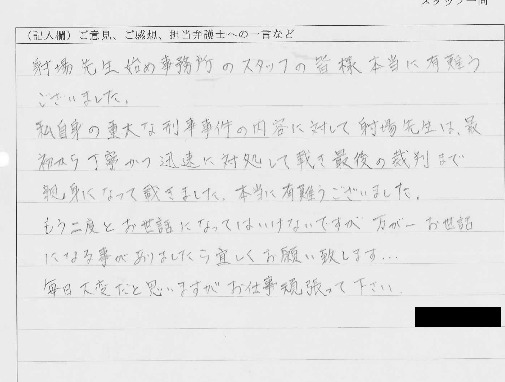 スタッフ一同
（記入欄）ご意見、ご感想、担当弁護士への一言など
射場先生始め事務所のスタッフの皆様本当に有難う
ございました。
私自身の重大な刑事事件の内容に対して射場先生は、最
初から丁寧かつ迅速に対処して戴き最後の裁判まで
親身になって戴きました。本当に有難うございました。
もう二度とお世話になってはいけないですが万が一お世話
になる事がありましたら宜しくお願い致します...
毎日大変だと思いますがお仕事頑張って下さい。